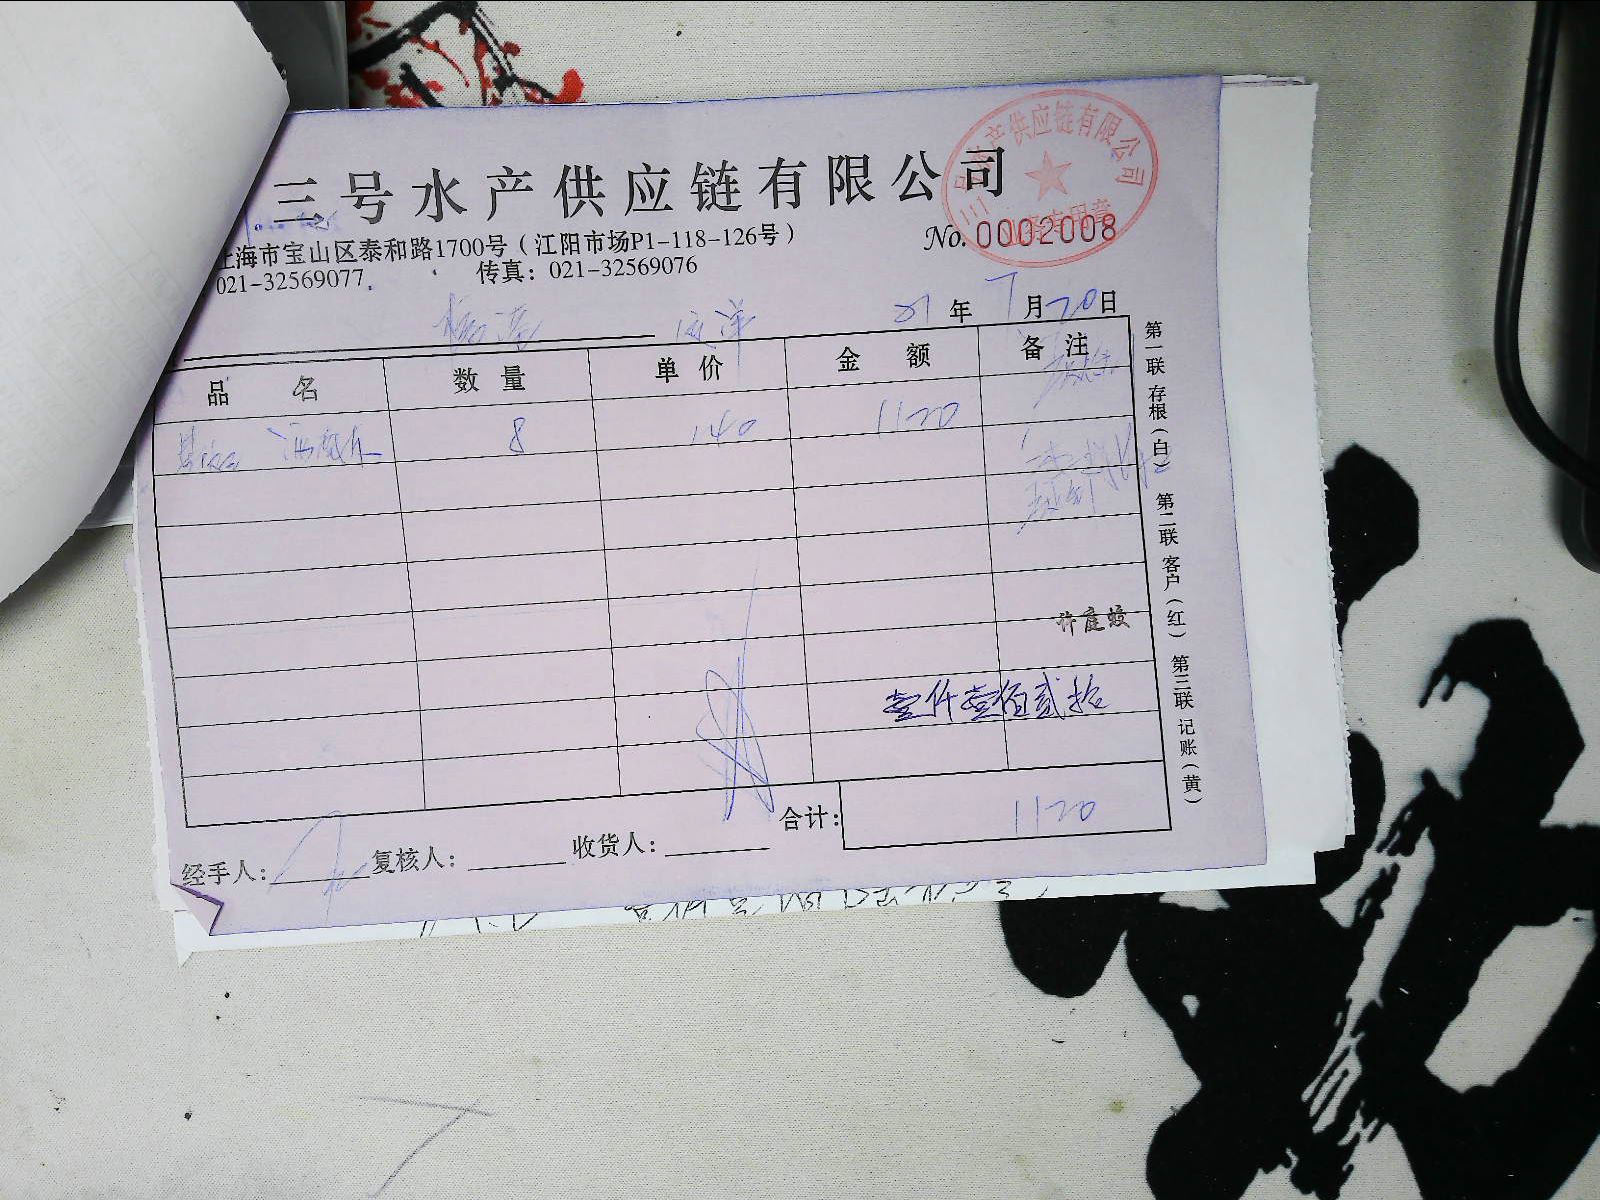 三号水产供应链有限公司
上海市宝山区泰和路1700号（江阳市场P1-118-126号）
No. 0002008
021-32569077 传真：021-32569076
21年7月20日
品名 数量 单价 金额 备注
8 140 1120
许庭蛟
壹仟壹佰贰拾
合计： 1120
经手人： 复核人： 收货人：
第一联 存根（白） 第二联 客户（红） 第三联 记账（黄）
产供应链有限公司
业务专用章